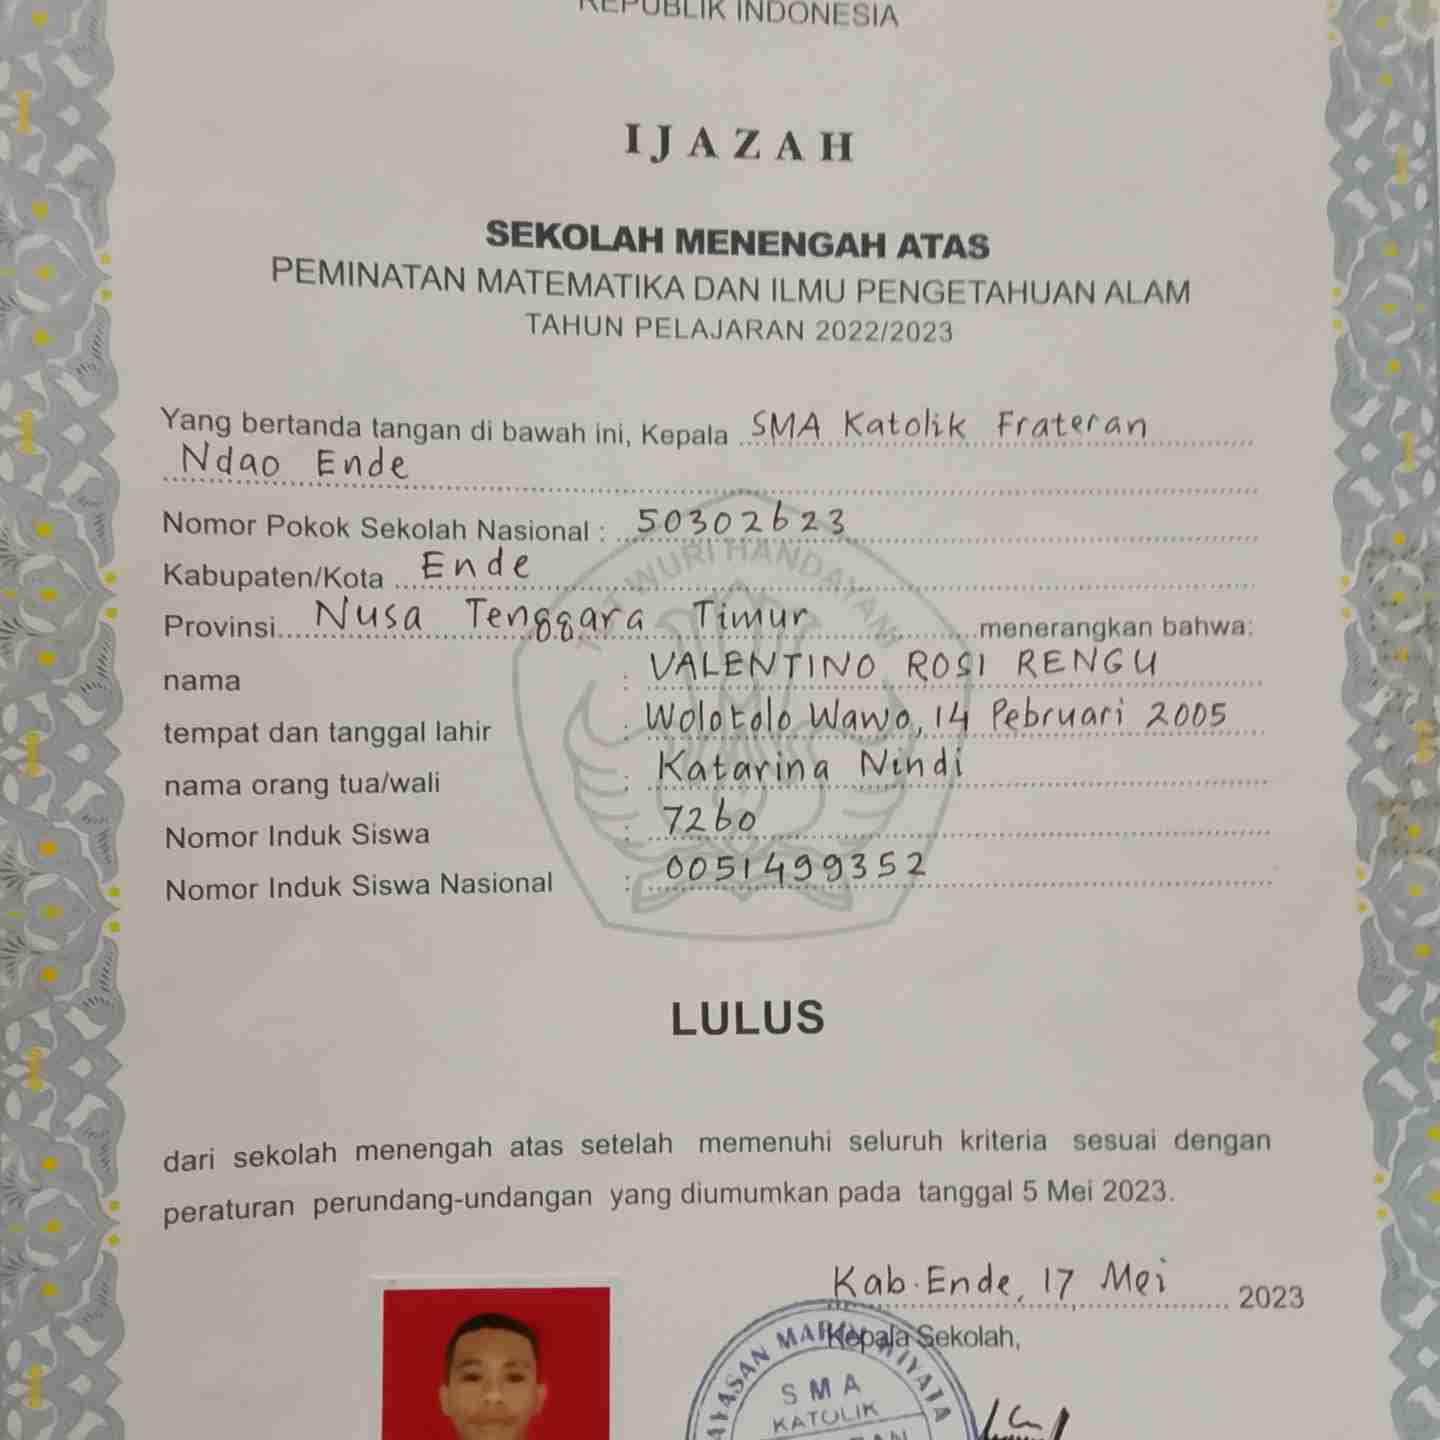 REPUBLIK INDONESIA
IJAZAH
SEKOLAH MENENGAH ATAS
PEMINATAN MATEMATIKA DAN ILMU PENGETAHUAN ALAM
TAHUN PELAJARAN 2022/2023
Yang bertanda tangan di bawah ini, Kepala SMA Katolik Frateran
Ndao Ende
Nomor Pokok Sekolah Nasional : 50302623
Kabupaten/Kota Ende
Provinsi Nusa Tenggara Timur menerangkan bahwa:
nama : VALENTINO ROSI RENGU
tempat dan tanggal lahir : Wolotolo Wawo, 14 Pebruari 2005
nama orang tua/wali : Katarina Nindi
Nomor Induk Siswa : 7260
Nomor Induk Siswa Nasional : 0051499352
TUT WURI HANDAYANI
LULUS
dari sekolah menengah atas setelah memenuhi seluruh kriteria sesuai dengan
peraturan perundang-undangan yang diumumkan pada tanggal 5 Mei 2023.
Kab. Ende, 17 Mei 2023
Kepala Sekolah,
YAYASAN MARDIWIYATA
SMA
KATOLIK